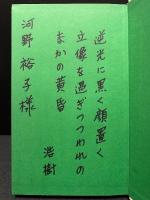 逆光に黒く顔置く
立像を過ぎつつわれの
まかの黄昏
浩樹
河野裕子様